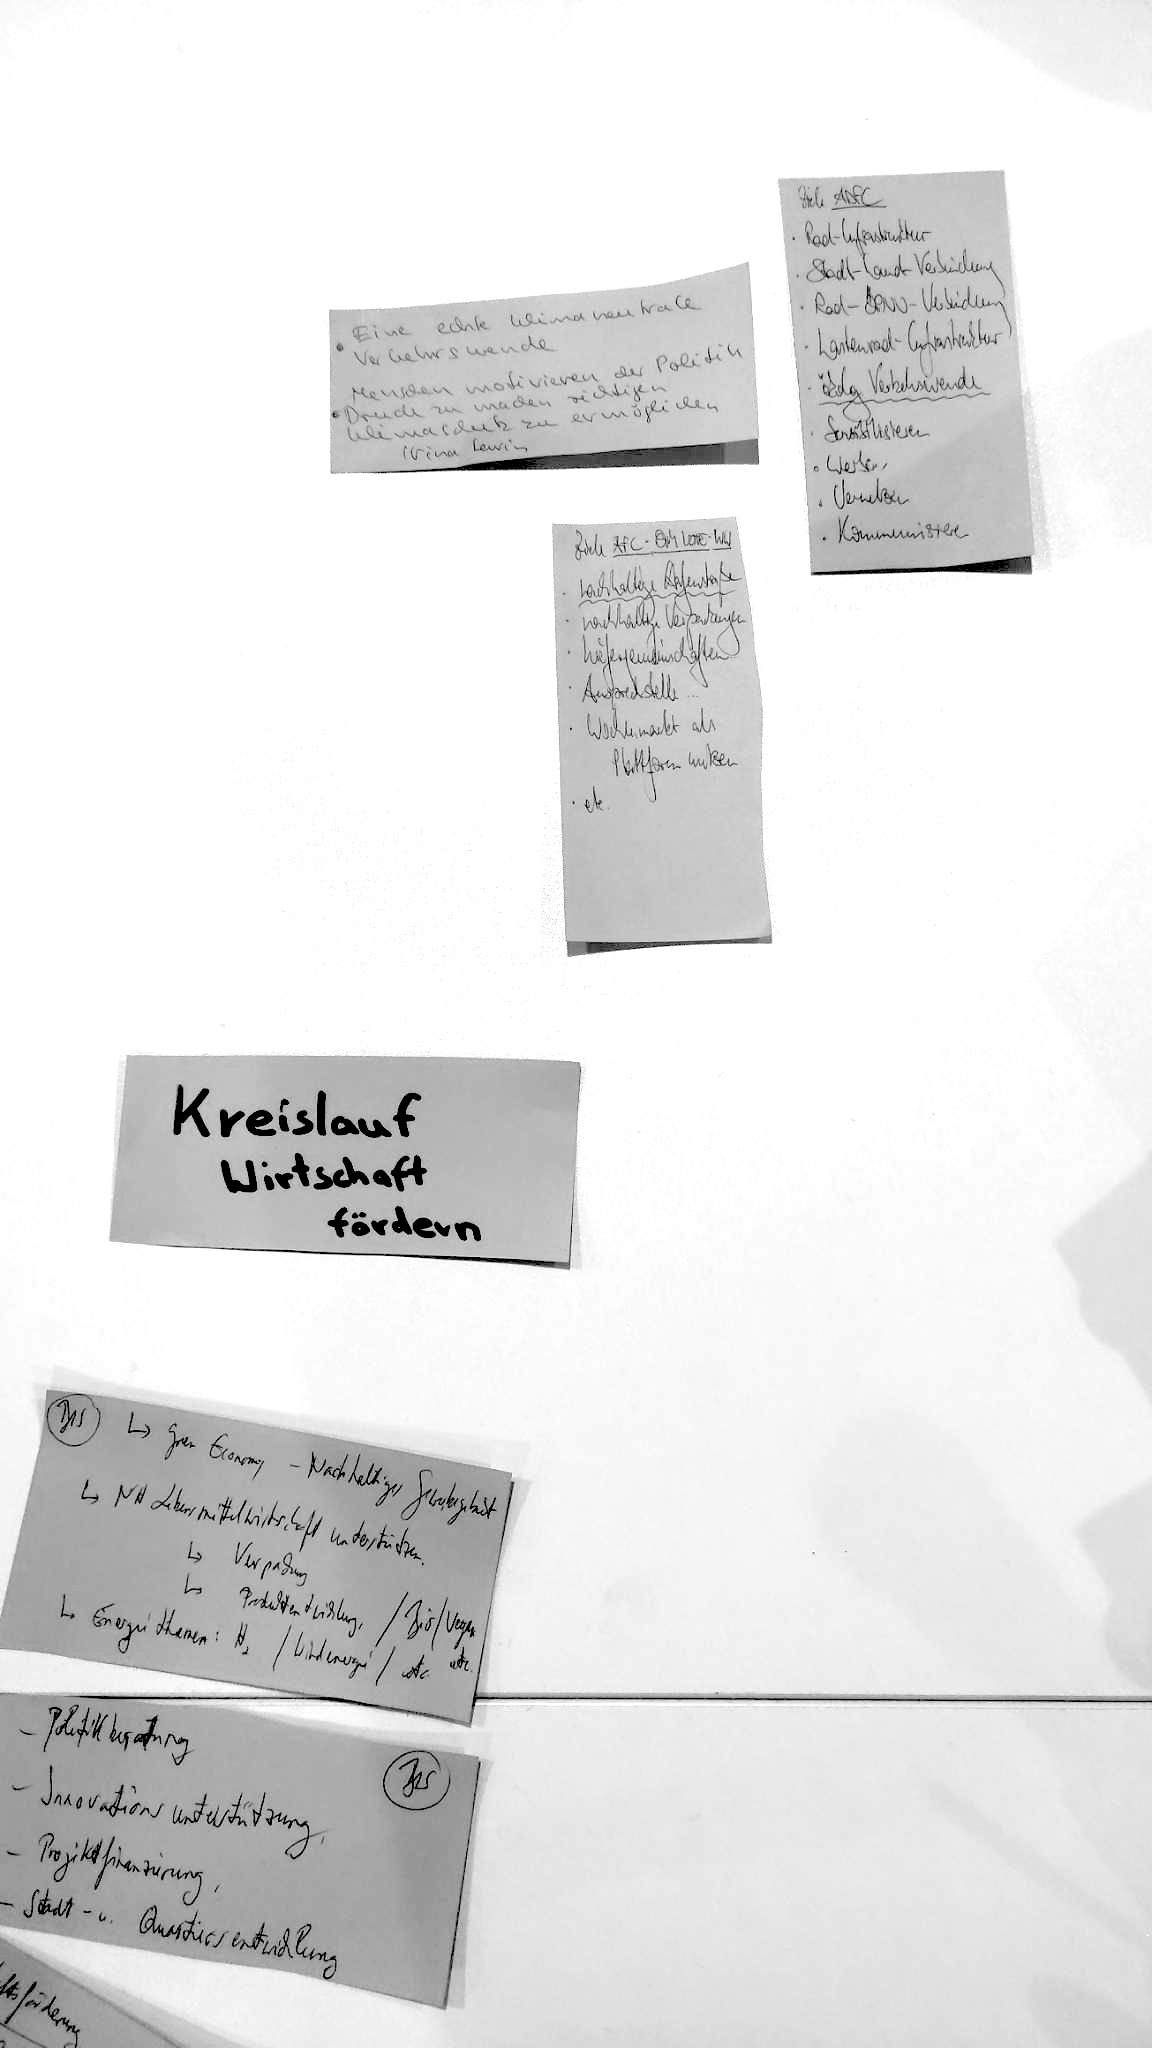 Ziele ADFC
· Rad-Infrastruktur
· Stadt-Land-Verbindung
· Rad-ÖPNV-Verbindung
· Lastenrad-Infrastruktur
· Verkehrswende
· Sensibilisieren
· Werben
· Vernetzen
· Kommunizieren
• Eine echte klimaneutrale
Verkehrswende
Menschen motivieren der Politik
• Druck zu machen richtigen
Klimaschutz zu ermöglichen
Ziele
· nachhaltige
· nachhaltige Verpackungen
· Liefergemeinschaften
· Ansprechstelle ...
· Wochenmarkt als
Plattform nutzen
· etc.
Kreislauf
Wirtschaft
fördern
BIS
↳ Green Economy - Nachhaltiges Gewerbegebiet
↳ NH Lebensmittelwirtschaft unterstützen.
↳ Verpackung
↳ Produktentwicklung, / Bio / Vegan etc.
↳ Energiethemen: H₂ / Windenergie / etc.
BIS
- Politikberatung
- Innovationsunterstützung,
- Projektfinanzierung,
- Stadt- u. Quartiersentwicklung